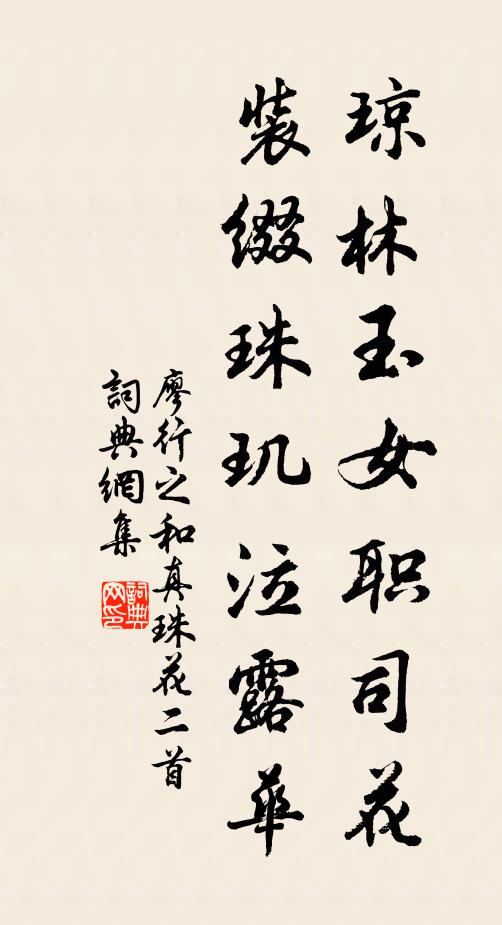 琼林玉女职司花
装缀珠玑泣露華
廖行之和真珠花二首
詞典網集
詞典网印